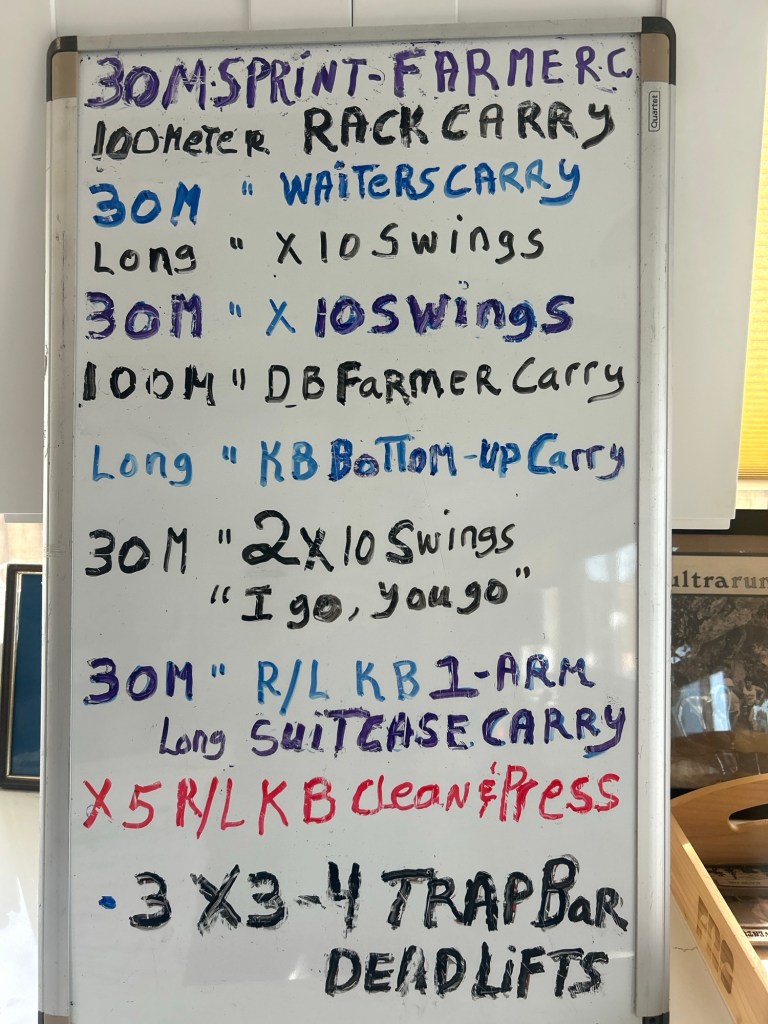 30M.SPRINT-FARMER C.
100 METER RACK CARRY
30M " WAITERS CARRY
Long " X 10 Swings
30M " X 10 Swings
100M " D.B FARMER Carry
Long " KB BOTTOM-UP Carry
30M " 2X10 Swings
"I go, you go"
30M " R/L KB 1-ARM
Long SUITCASE CARRY
X 5 R/L KB Clean & Press
• 3 X 3-4 TRAP BAR
DEADLIFTS
Quartet
ultrarun